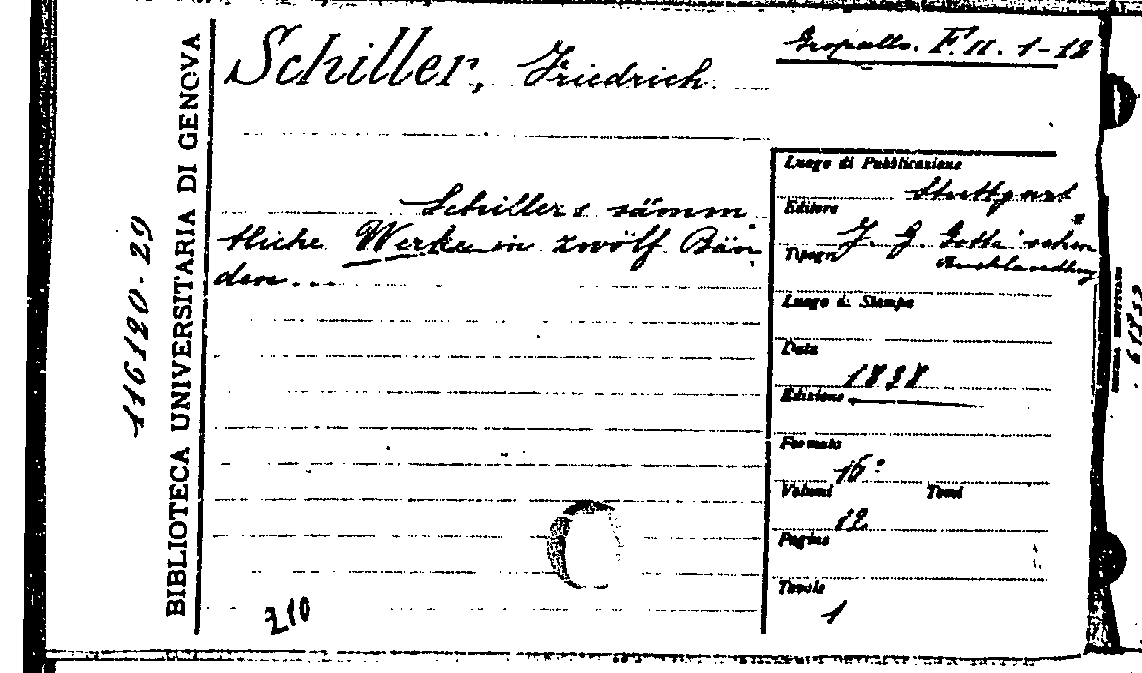 Gropallo. F. II. 1-12
Schiller, Friedrich
Schillers sämm
tliche Werke in zwölf Bän
den...
BIBLIOTECA UNIVERSITARIA DI GENOVA
116120-29
Luogo di Pubblicazione
Stuttgart
Editore
J. G. Cotta'schen
Tipogr
Luogo di Stampa
Data
1838
Edizione
Formato
16°
Volumi Tomi
12
Pagine
Tavole
1
210